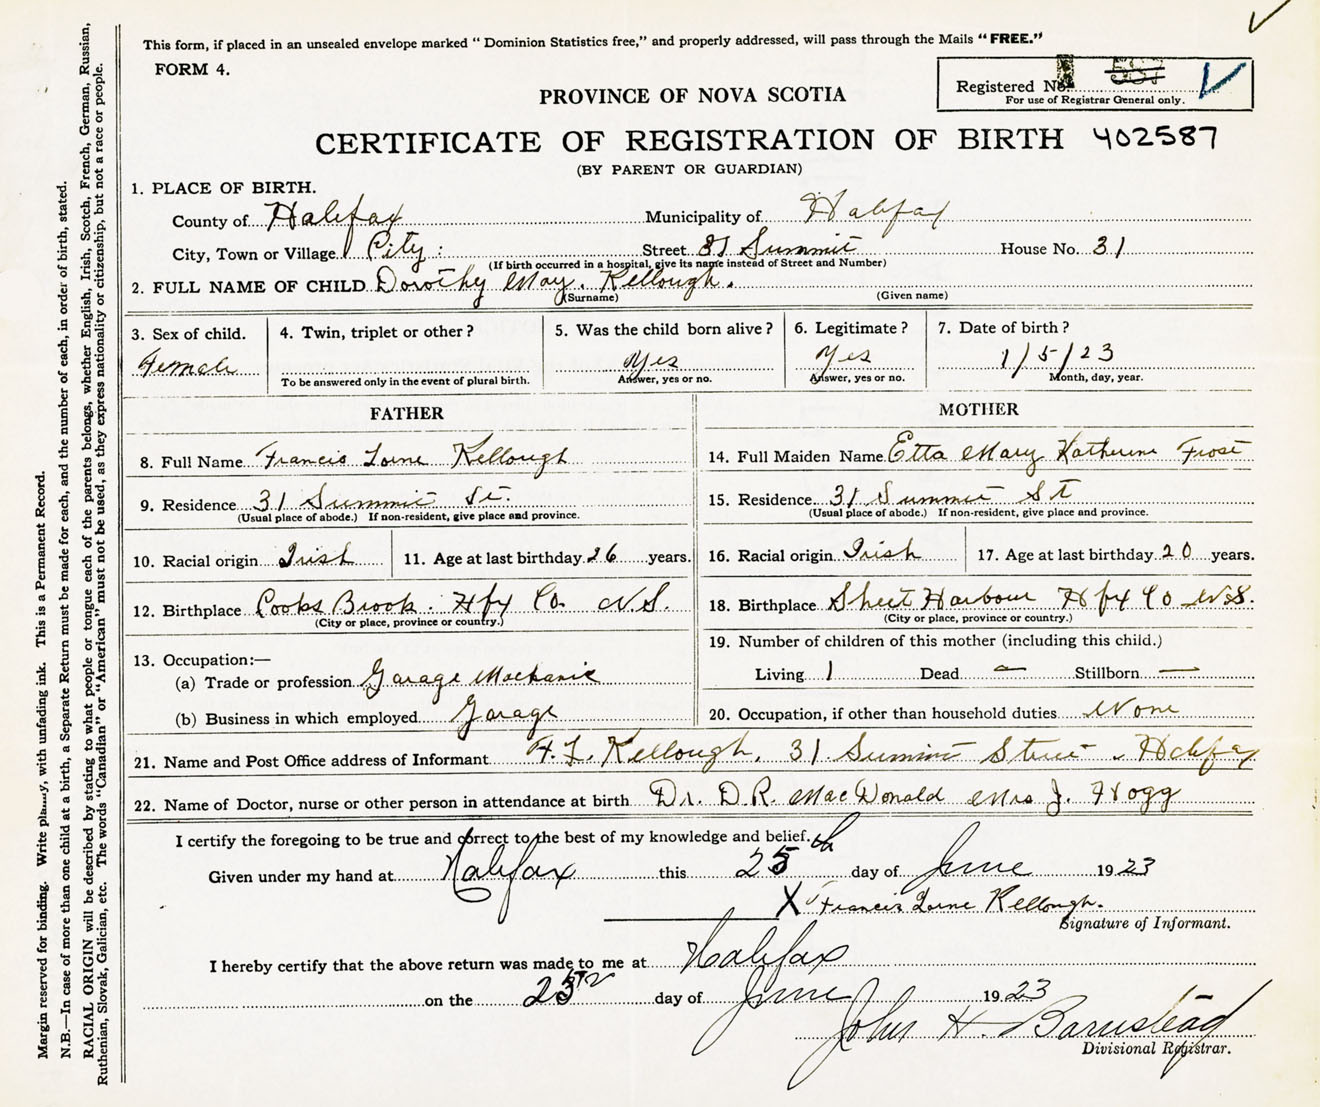 This form, if placed in an unsealed envelope marked "Dominion Statistics free," and properly addressed, will pass through the Mails "FREE."
FORM 4.
Registered No.
For use of Registrar General only.
PROVINCE OF NOVA SCOTIA
CERTIFICATE OF REGISTRATION OF BIRTH 402587
(BY PARENT OR GUARDIAN)
1. PLACE OF BIRTH.
County of Halifax Municipality of Halifax
City, Town or Village City: Street 31 Summit House No. 31
(If birth occurred in a hospital, give its name instead of Street and Number)
2. FULL NAME OF CHILD Dorothy May. Kellough.
(Surname) (Given name)
3. Sex of child. 4. Twin, triplet or other? 5. Was the child born alive? 6. Legitimate? 7. Date of birth?
Female Yes Yes 1/5/23
To be answered only in the event of plural birth. Answer, yes or no. Answer, yes or no. Month, day, year.
FATHER MOTHER
8. Full Name Francis Lorne Kellough 14. Full Maiden Name Etta Mary Katherine Frost
9. Residence 31 Summit St. 15. Residence 31 Summit St
(Usual place of abode.) If non-resident, give place and province. (Usual place of abode.) If non-resident, give place and province.
10. Racial origin Irish 11. Age at last birthday 26 years. 16. Racial origin Irish 17. Age at last birthday 20 years.
12. Birthplace Cooks Brook. Hfx Co. N.S. 18. Birthplace Sheet Harbour Hfx Co N.S.
(City or place, province or country.) (City or place, province or country.)
19. Number of children of this mother (including this child.)
13. Occupation:—
(a) Trade or profession Garage Mechanic Living 1 Dead — Stillborn —
(b) Business in which employed Garage 20. Occupation, if other than household duties None
21. Name and Post Office address of Informant F. L. Kellough, 31 Summit Street. Halifax
22. Name of Doctor, nurse or other person in attendance at birth Dr. D.R. MacDonald Mrs J. Hogg
I certify the foregoing to be true and correct to the best of my knowledge and belief.
Given under my hand at Halifax this 25th day of June 1923
X Francis Lorne Kellough.
Signature of Informant.
I hereby certify that the above return was made to me at Halifax
on the 25th day of June 1923
John H. Barnstead
Divisional Registrar.
Margin reserved for binding. Write plainly, with unfading ink. This is a Permanent Record.
N.B.—In case of more than one child at a birth, a Separate Return must be made for each, and the number of each, in order of birth, stated.
RACIAL ORIGIN will be described by stating to what people or tongue each of the parents belongs, whether English, Irish, Scotch, French, German, Russian,
Ruthenian, Slovak, Galician, etc. The words "Canadian" or "American" must not be used, as they express nationality or citizenship, but not a race or people.